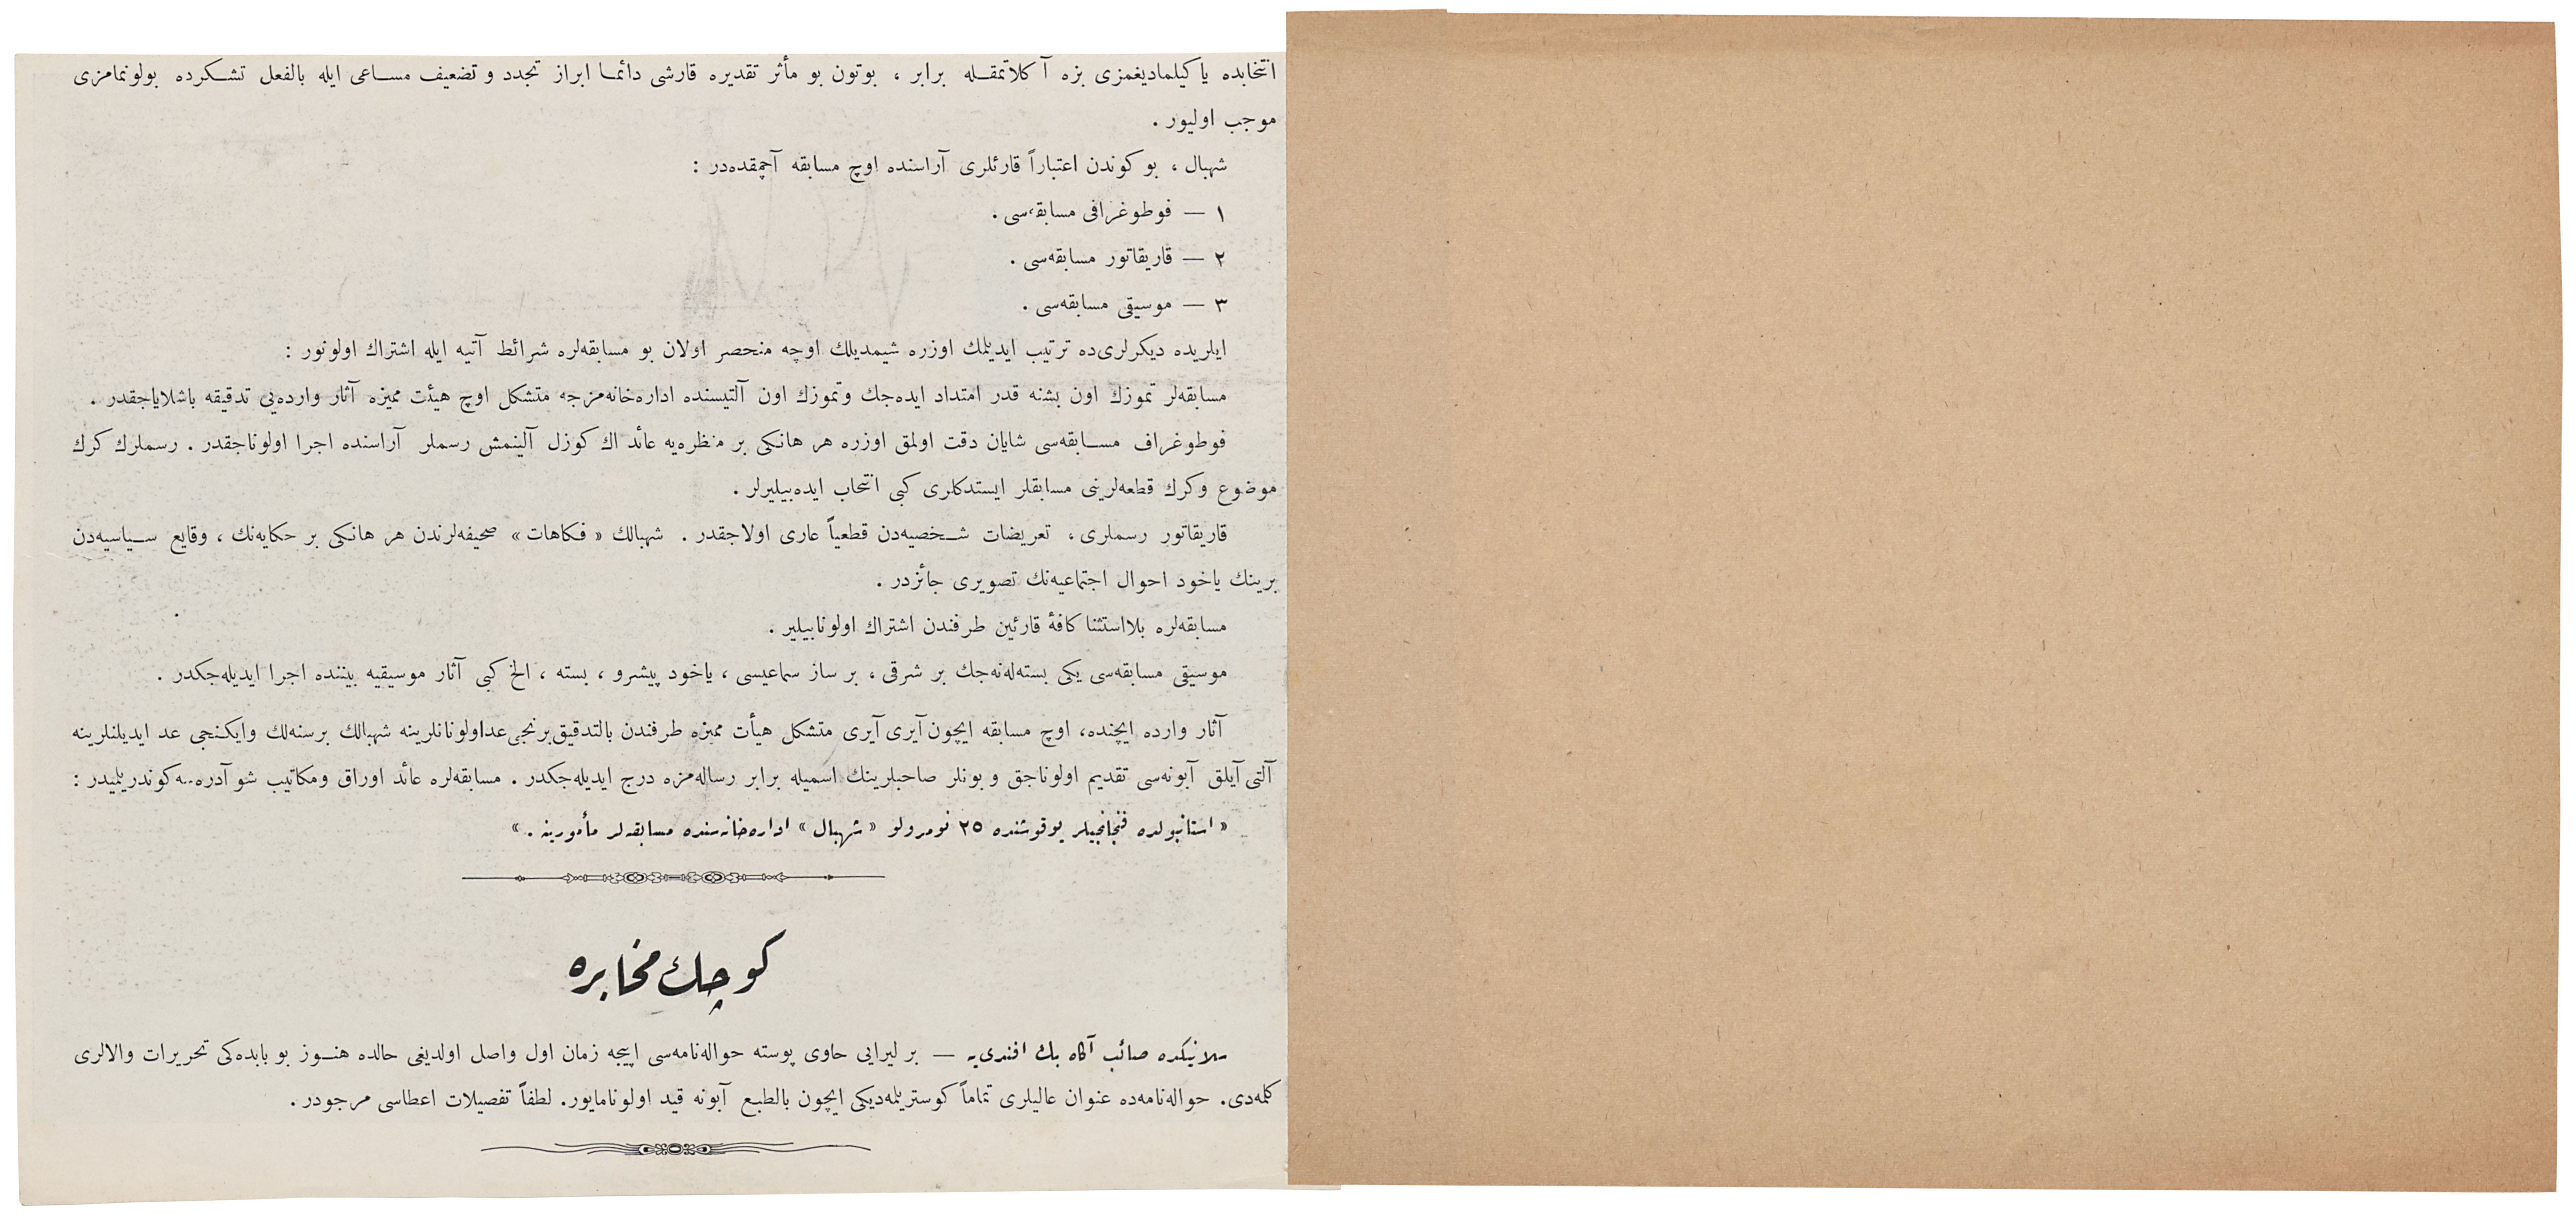 انتخابده یاکیلمادیغمزی بزه آکلاتمقله برابر ، بوتون بو مأثر تقدیره قارشی دائما ابراز تجدد و تضعیف مساعی ایله بالفعل تشکرده بولونمامزی
موجب اولیور .
شهبال ، بو کوندن اعتباراً قارئلری آراسنده اوچ مسابقه آچمقده‌در :
۱ — فوطوغرافی مسابقه‌سی .
۲ — قاریقاتور مسابقه‌سی .
۳ — موسیقی مسابقه‌سی .
ایلریده دیکرلری‌ده ترتیب ایدیلمك اوزره شیمدیلك اوچه منحصر اولان بو مسابقه‌لره شرائط آتیه ایله اشتراك اولونور :
مسابقه‌لر تموزك اون بشنه قدر امتداد ایده‌جك وتموزك اون آلتیسنده اداره‌خانه‌مزجه متشکل اوچ هیئت ممیزه آثار وارده‌یی تدقیقه باشلایاجقدر .
فوطوغراف مسابقه‌سی شایان دقت اولمق اوزره هر هانکی بر منظره‌یه عائد اك کوزل آلینمش رسملر آراسنده اجرا اولوناجقدر . رسملرك کرك
موضوع وکرك قطعه‌لرینی مسابقلر ایستدکلری کبی انتخاب ایده‌بیلیرلر .
قاریقاتور رسملری ، تعریضات شخصیه‌دن قطعیاً عاری اولاجقدر . شهبالك « فکاهات » صحیفه‌لرندن هر هانکی بر حکایه‌نك ، وقایع سیاسیه‌دن
برینك یاخود احوال اجتماعیه‌نك تصویری جائزدر .
مسابقه‌لره بلااستثنا کافۀ قارئین طرفندن اشتراك اولونابیلیر .
موسیقی مسابقه‌سی یکی بسته‌له‌نه‌جك بر شرقی ، بر ساز سماعیسی ، یاخود پیشرو ، بسته ، الخ کبی آثار موسیقیه بیننده اجرا ایدیله‌جکدر .
آثار وارده ایچنده، اوچ مسابقه ایچون آیری آیری متشکل هیأت ممیزه طرفندن بالتدقیق برنجی عداولونانلرینه شهبالك برسنه‌لك وایکنجی عد ایدیلنلرینه
آلتی آیلق آبونه‌سی تقدیم اولوناجق و بونلر صاحبلرینك اسمیله برابر رساله‌مزه درج ایدیله‌جکدر . مسابقه‌لره عائد اوراق ومکاتیب شو آدره‌سه کوندریلمیلدر :
« استانبولده فنجانجیلر یوقوشنده ۲۵ نومرولو « شهبال » اداره‌خانه‌سنده مسابقه‌لر مأمورینه . »
کوچك مخابره
سلانیکده صائب آگاه بك افندی‌یه — بر لیرایی حاوی پوسته حواله‌نامه‌سی اپیجه زمان اول واصل اولدیغی حالده هنوز بو بابده‌کی تحریرات والالری
کلمه‌دی. حواله‌نامه‌ده عنوان عالیلری تماماً کوستریلمه‌دیکی ایچون بالطبع آبونه قید اولونامایور. لطفاً تفصیلات اعطاسی مرجودر .